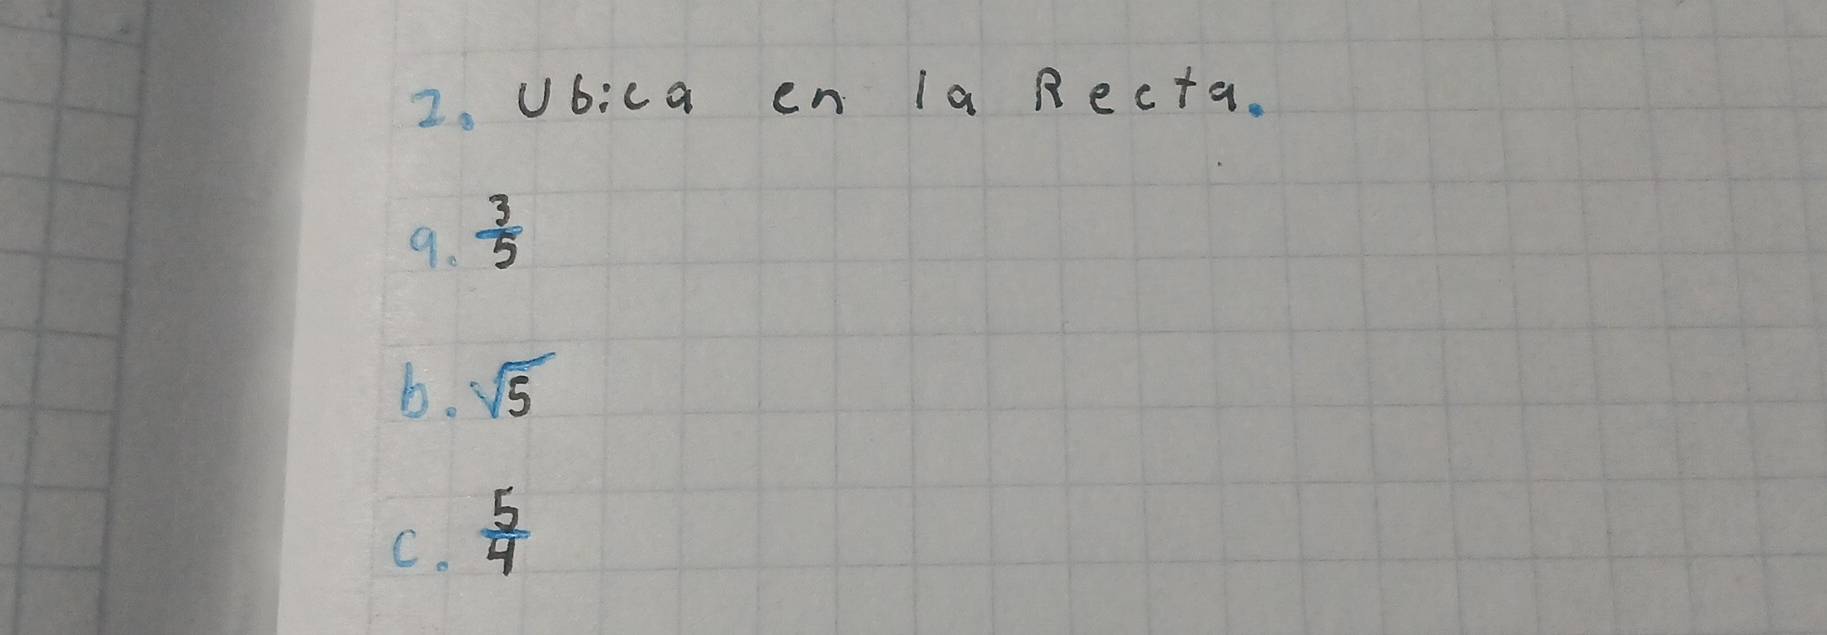 2. Ubica en la Recta.
a. 3/5
b. √5
c. 5/4